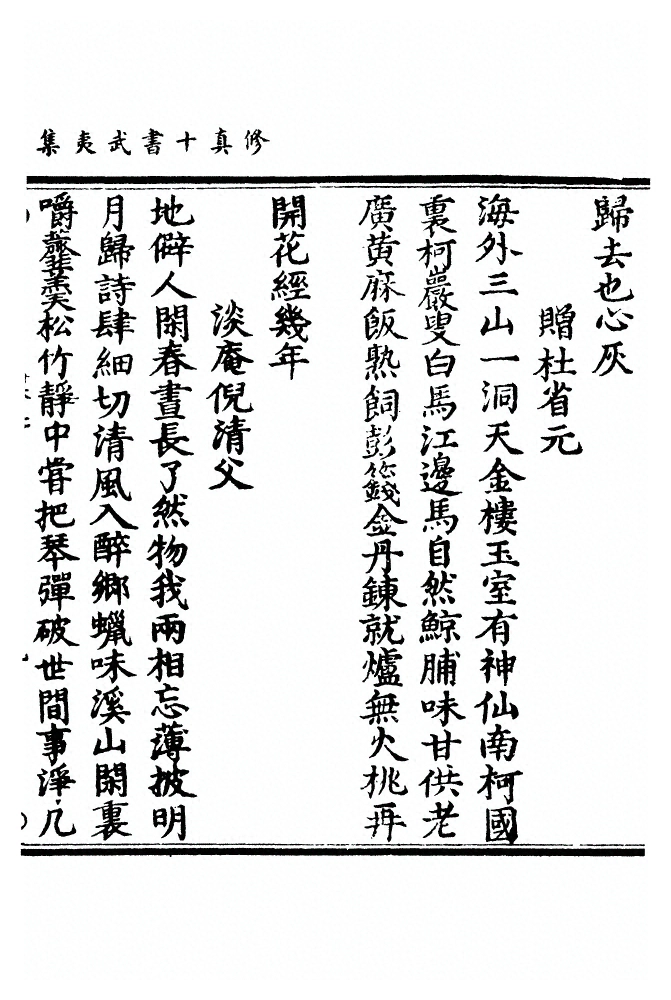 修真十書武夷集
歸去也心灰
贈杜省元
海外三山一洞天金樓玉室有神仙南柯國
裏柯巖叟白馬江邊馬自然鯨脯味甘供老
廣黃麻飯熟飼彭籛金丹鍊就爐無火桃再
開花經幾年
淡庵倪清父
地僻人閑春晝長了然物我兩相忘薄披明
月歸詩肆細切清風入醉鄉蠟味溪山閑裏
嚼虀羹松竹靜中甞把琴彈破世間事淨几